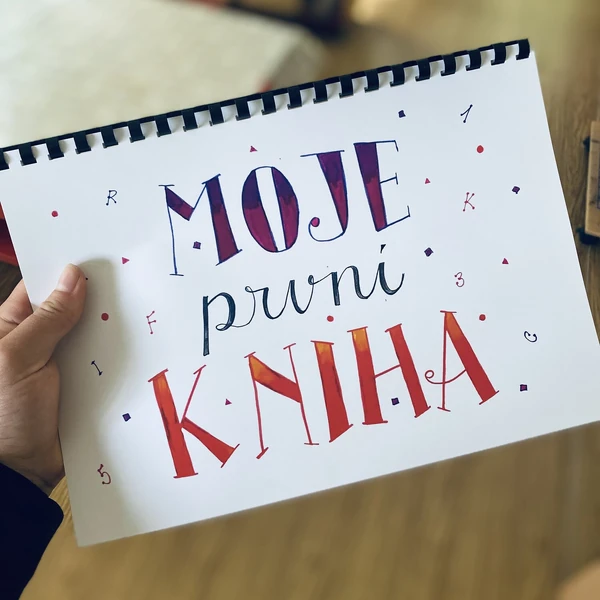 1
R
MOJE
K
první
3
F
KNIHA
C
I
5